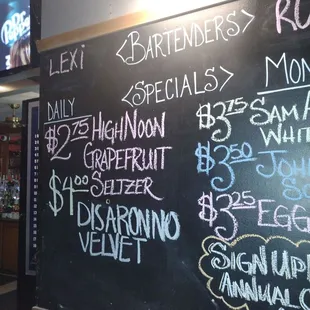 LEXI
<BARTENDERS>
<SPECIALS>
DAILY
$2.75 HIGH NOON
GRAPEFRUIT
SELTZER
$4.00 DISARONNO
VELVET
MON
$3.75 SAM
WHIT
$3.50 JOH
$3.25 EGG
SIGN UP
ANNUAL